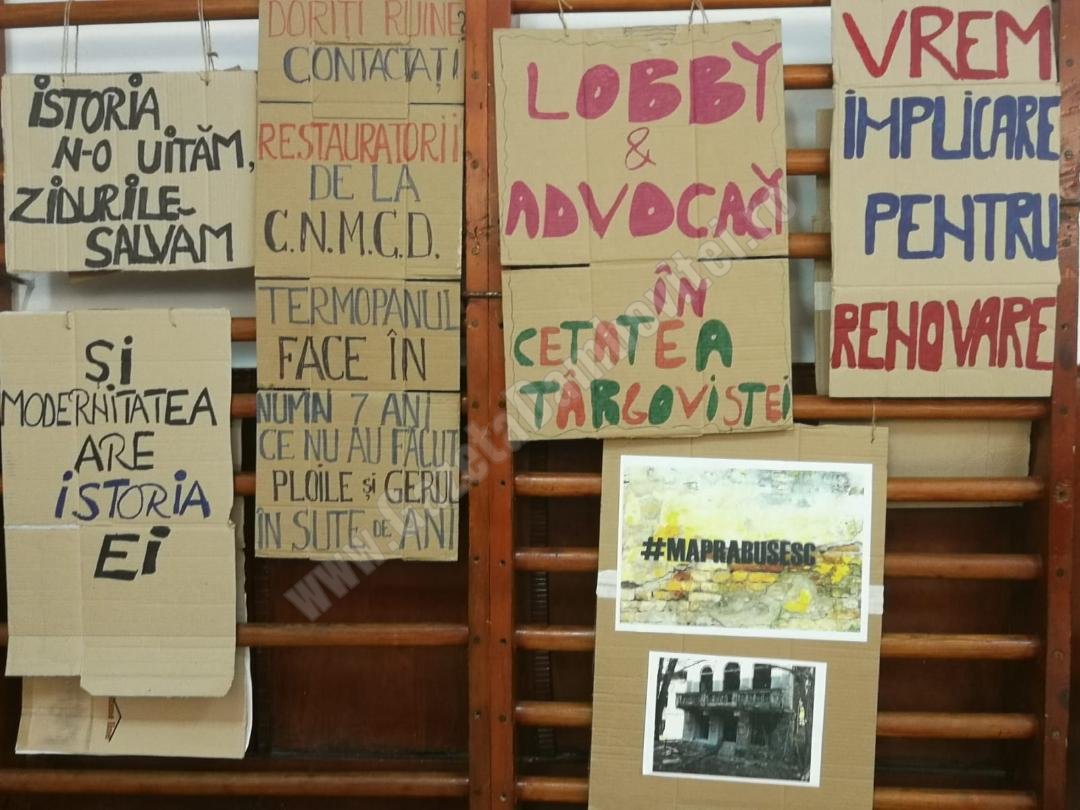 ISTORIA
N-O UITĂM,
ZIDURILE-
SALVAM
ȘI
MODERNITATEA
ARE
ISTORIA
EI
DORIȚI RUINE?
CONTACTAȚI
RESTAURATORII
DE LA
C.N.M.C.D.
TERMOPANUL
FACE ÎN
NUMAI 7 ANI
CE NU AU FĂCUT
PLOILE ȘI GERUL
ÎN SUTE DE ANI
LOBBY
&
ADVOCACY
ÎN
CETATEA
TÂRGOVIȘTEI
VREM
IMPLICARE
PENTRU
RENOVARE
#MAPRABUSESC
www.GazetaDambovitei.ro